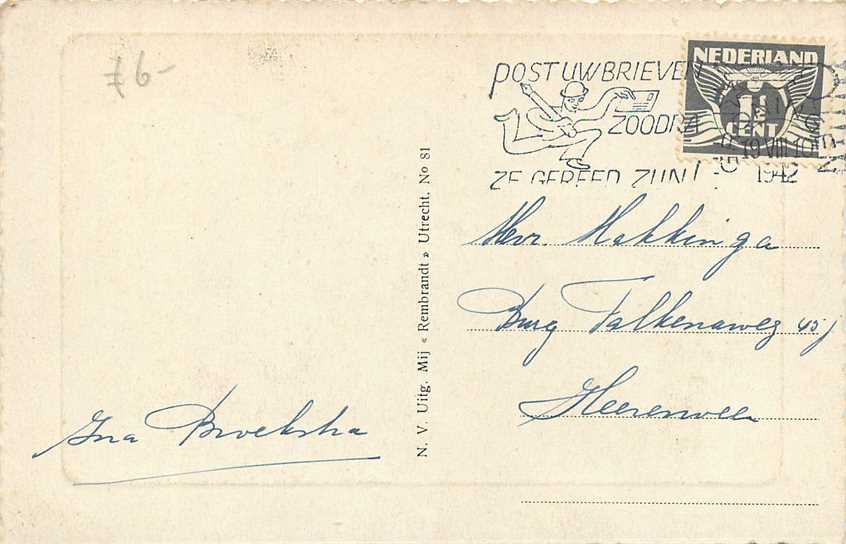 76-
POST UW BRIEVEN
ZOODRA
ZE GEREED ZIJN!
NEDERLAND
1½
CENT
19 VIII 10
1942
N. V. Uitg. Mij « Rembrandt » Utrecht. No 81
Hvr. Makkinga
Burg Falkenaweg 45
Heerenveen
Ina Broekstra